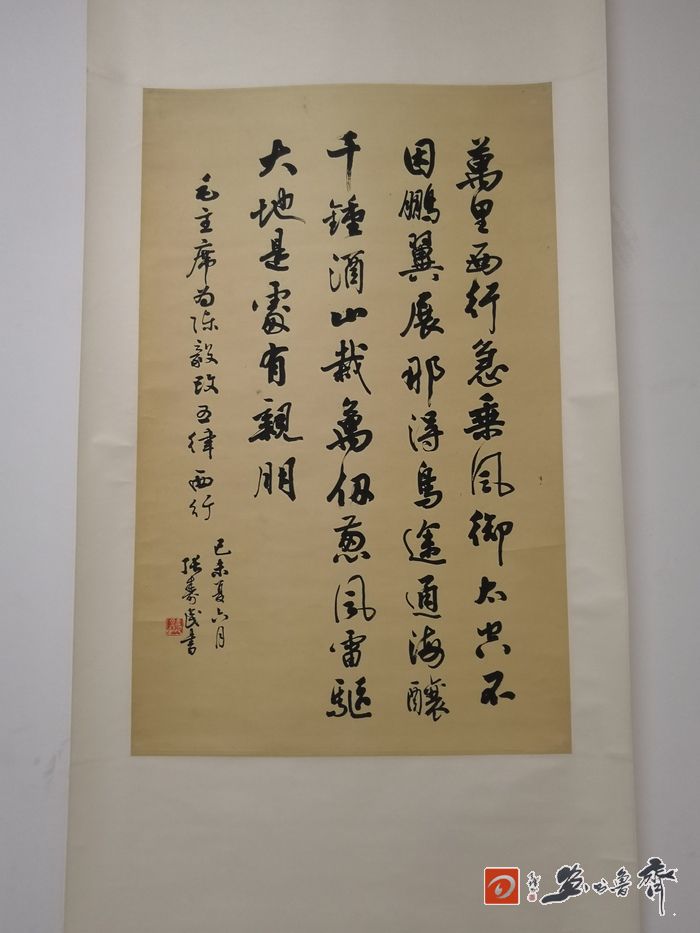 萬里西行急乘風御太空不
因鵬翼展那得鳥途通海釀
千鍾酒山栽萬仞葱風雷驅
大地是處有親朋
毛主席为陈毅改五律西行
己未夏六月
張壽民書
齊魯